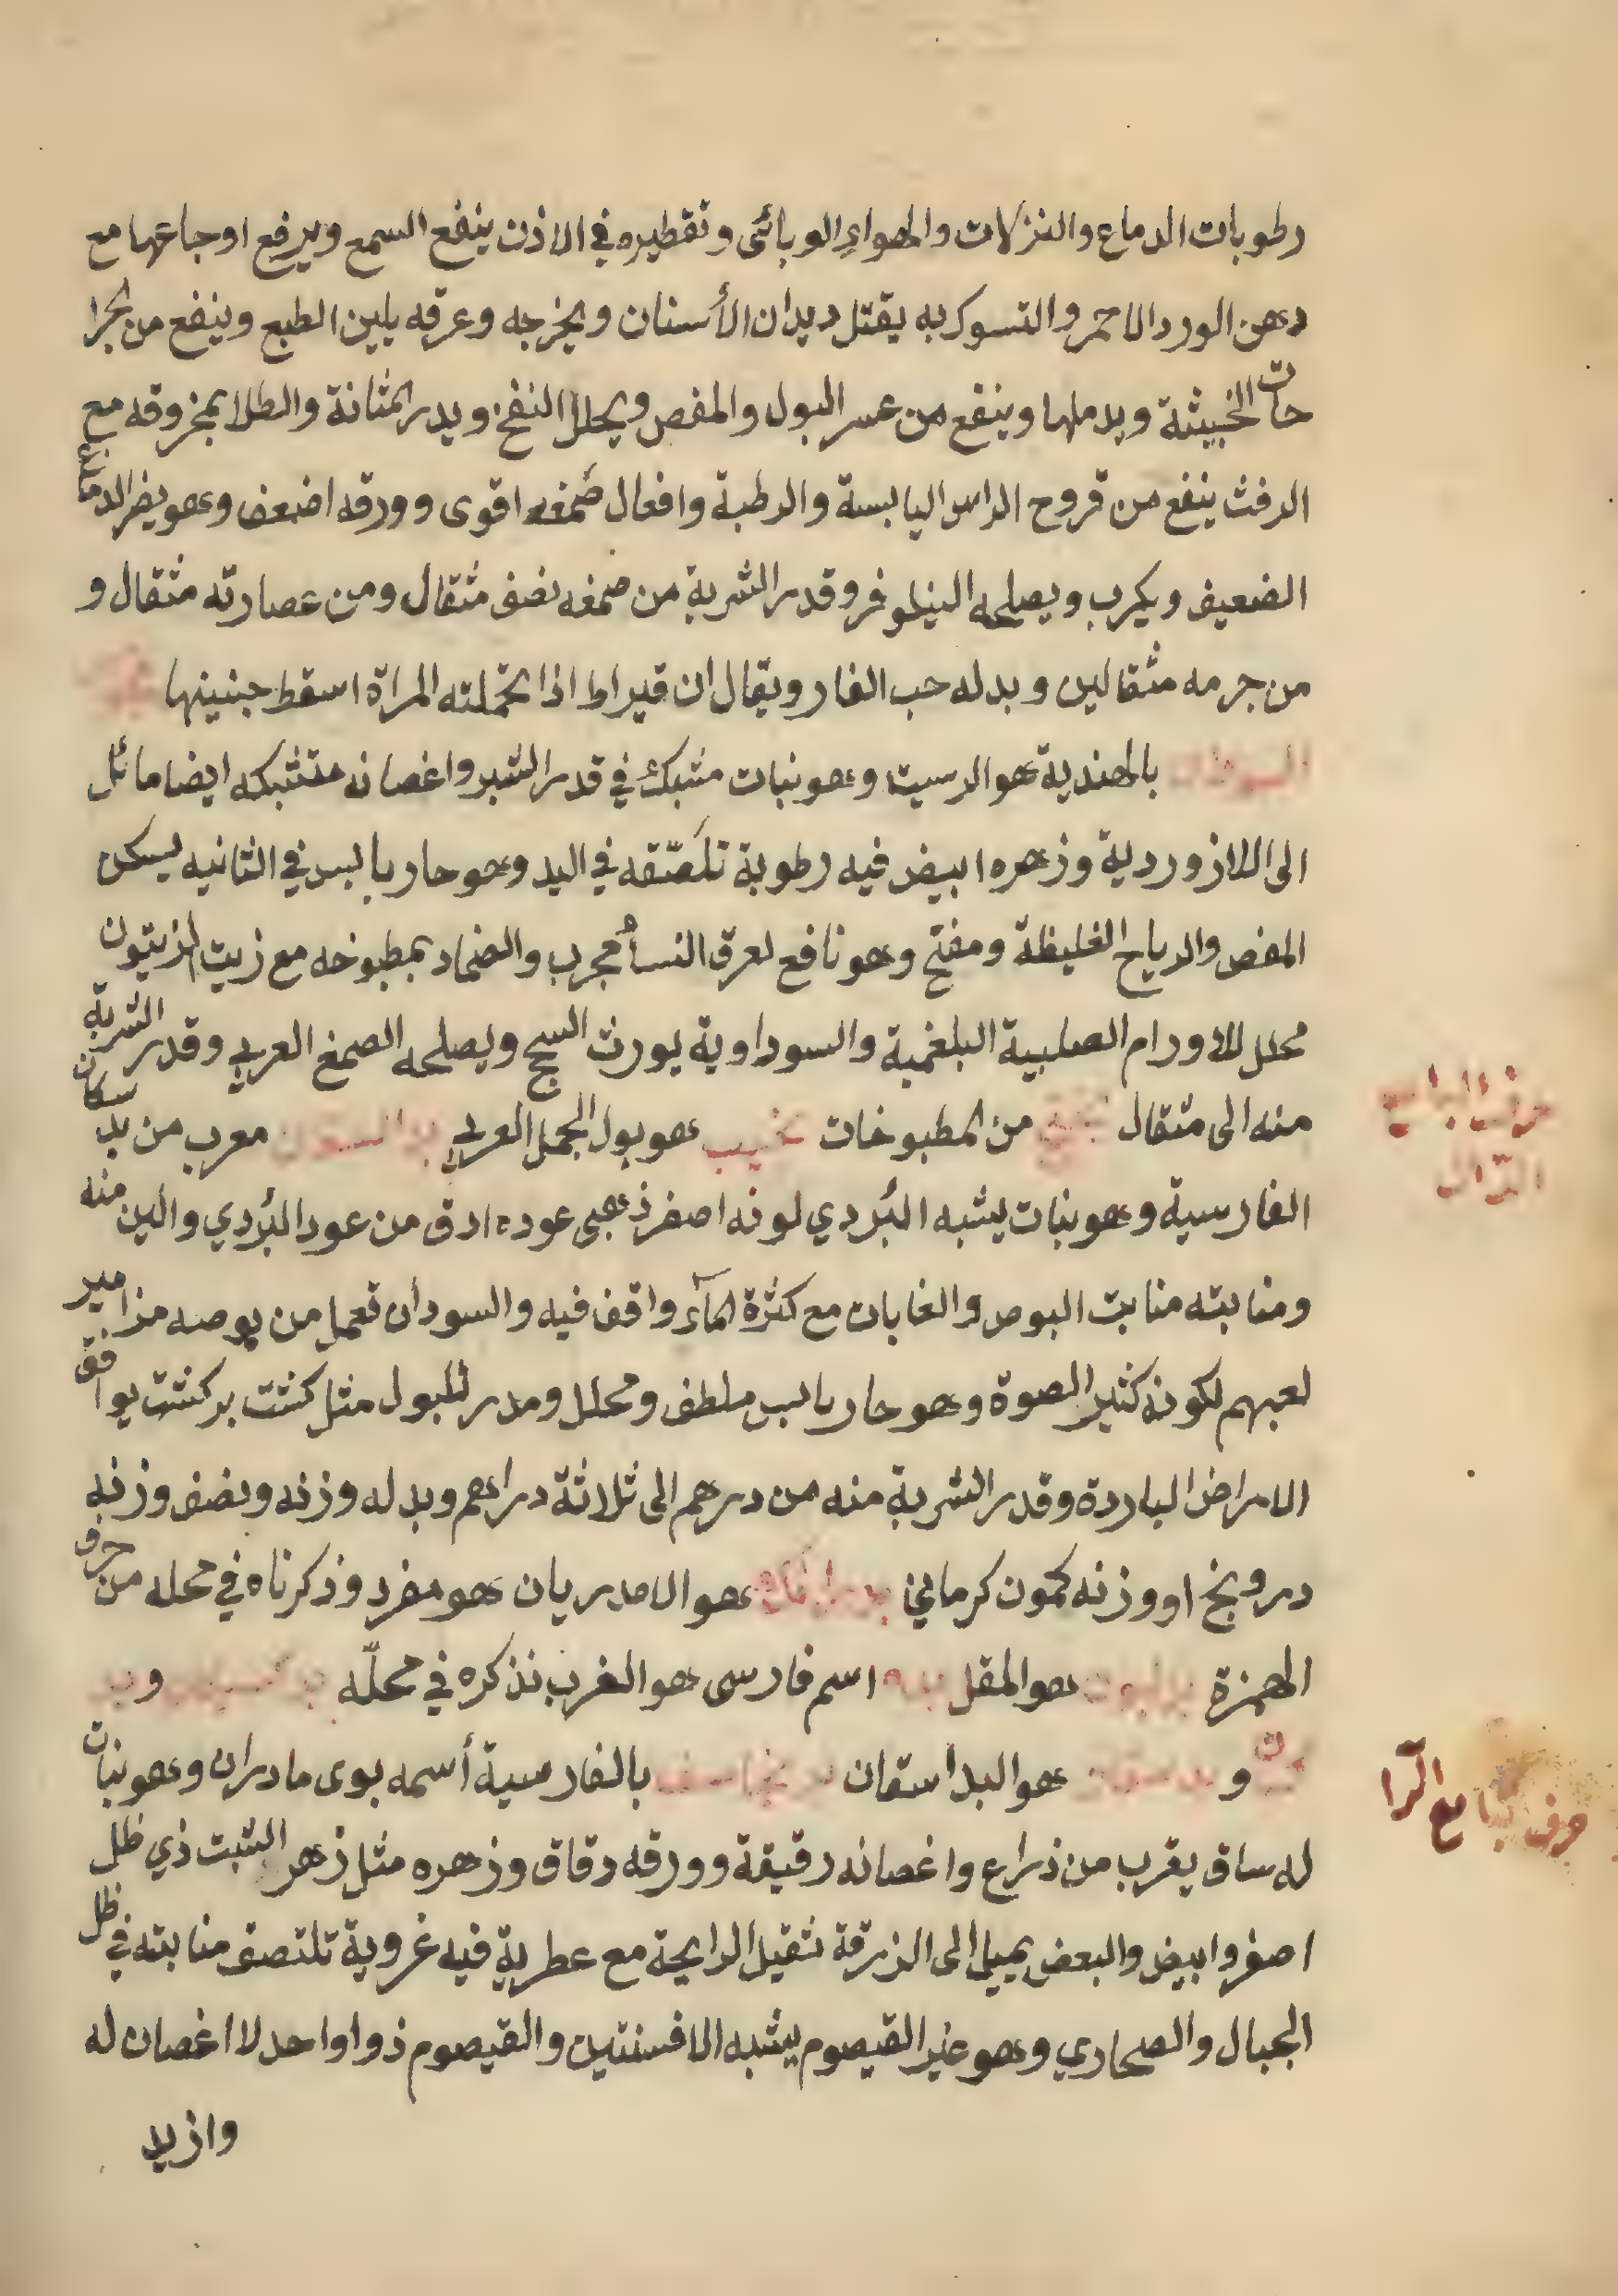 رطوبات الدماغ والنزلات والهواء الوبائى وتقطيره في الاذن ينفع السمع ويرفع اوجاعها مع
دهن الورد الاحمر والتسوك به يقتل ديدان الأسنان ويخرجه وعرقه يلين الطبع وينفع من الجرا
حات الخبيثة ويدملها وينفع من عسر البول والمغص ويحلل النفخ ويدر المثانة والطلا بمحروقه مع
الزفت ينفع من قروح الراس اليابسة والرطبة وافعال صمغه اقوى وورقه اضعف وهو يضر الدماغ
الضعيف ويكرب ويصلحه النيلوفر وقدر الشربة من صمغه نصف مثقال ومن عصارته مثقال و
من جرمه مثقالين وبدله حب الغار ويقال ان قيراط اذا تحملته المراة اسقط جنينها
بالهندية هو الرسيت وهو نبات مشبك في قدر الشبر واغصانه متشبكه ايضا مائل
الى اللازوردية وزهره ابيض فيه رطوبة تلصّقه في اليد وهو حار يابس في الثانيه يسكن
المغص والرياح الغليظة ومفتح وهو نافع لعرق النسأ مجرب والضماد بمطبوخه مع زيت الزيتون
محلل للاورام الصلبية البلغمية والسوداوية يورث السحج ويصلحه الصمغ العربي وقدر الشربة
منه الى مثقال من المطبوخات هو بول الجمل العربي معرب من بد سكان
الفارسية وهو نبات يشبه البُردي لونه اصفر ذهبى عوده ادق من عود البُردي والين منه
ومنابته منابت البوص والغابات مع كثرة المآء واقف فيه والسودان تعمل من بوصه مزامير
لعبهم لكونه كثير الصوة وهو حار يابس ملطف ومحلل ومدر للبول مثل كشت بر كشت يوافق
الامراض الباردة وقدر الشربة منه من درهم الى ثلاثة دراهم وبدله وزنه ونصف وزنه
درونج او وزنه كمون كرماني هو الامدريان هو مفرد وذكرناه في محله من حرف
الهمزة هو المقل اسم فارسى هو الغرب نذكره في محلّه و
و هو البداسقان بالفارسية أسمه بوى مادران وهو نبات
له ساق يقرب من ذراع واغصانه رقيقة وورقه دقاق وزهره مثل زهر الشبت ذي ظل
اصفر وابيض والبعض يميل الى الزرقة ثقيل الرايحة مع عطرية فيه غروية تلتصق منابته في ظل
الجبال والصحاري وهو غير القيصوم يشبه الافسنتين والقيصوم ذو اواحد لا اغصان له
وازيد
حرف البا مع
الدال
حرف البا مع الرا